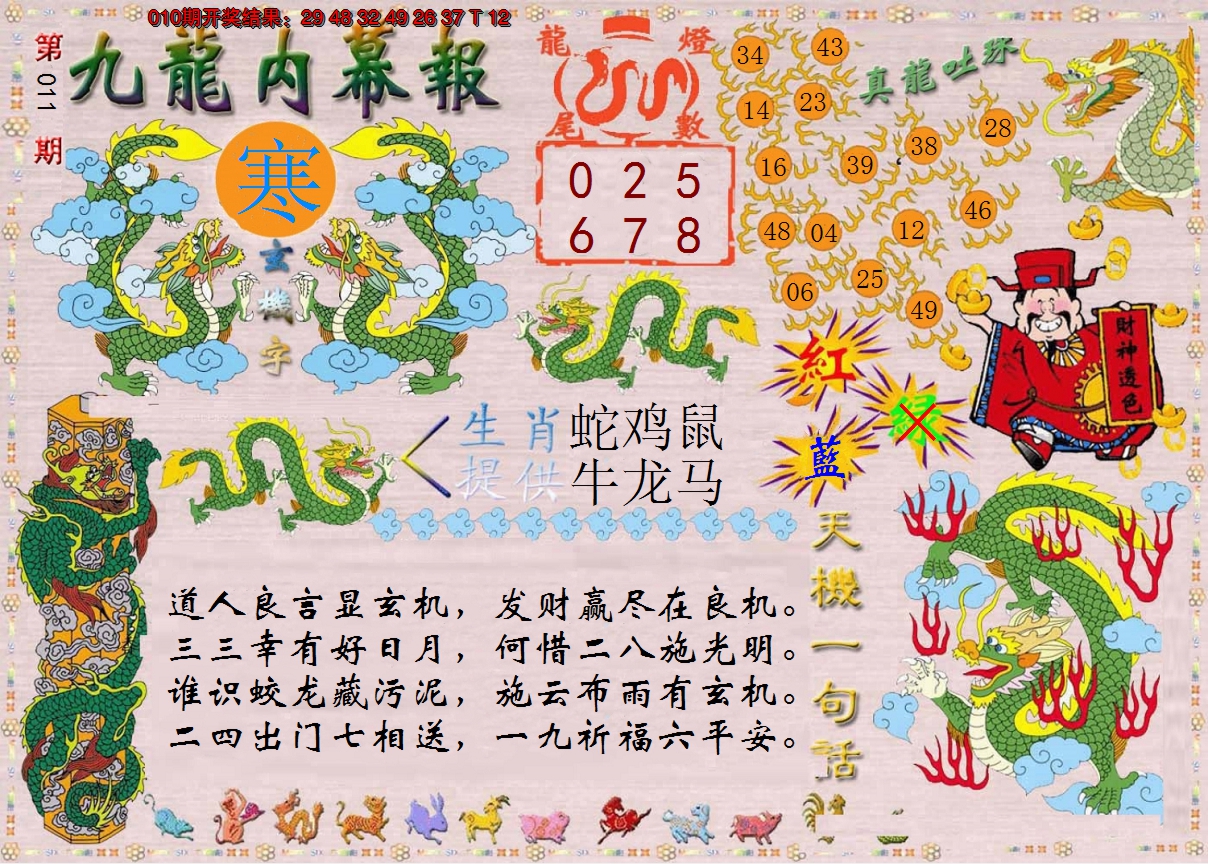 010期开奖结果：29 48 32 49 26 37 T 12
第011期
九龍内幕報
寒
玄機字
龍燈
尾數
0 2 5
6 7 8
真龍吐珠
34
43
14
23
16
39
38
28
48
04
12
46
06
25
49
財神透色
紅
绿
藍
生肖提供
蛇鸡鼠
牛龙马
天機一句話
道人良言显玄机，发财赢尽在良机。
三三幸有好日月，何惜二八施光明。
谁识蛟龙藏污泥，施云布雨有玄机。
二四出门七相送，一九祈福六平安。